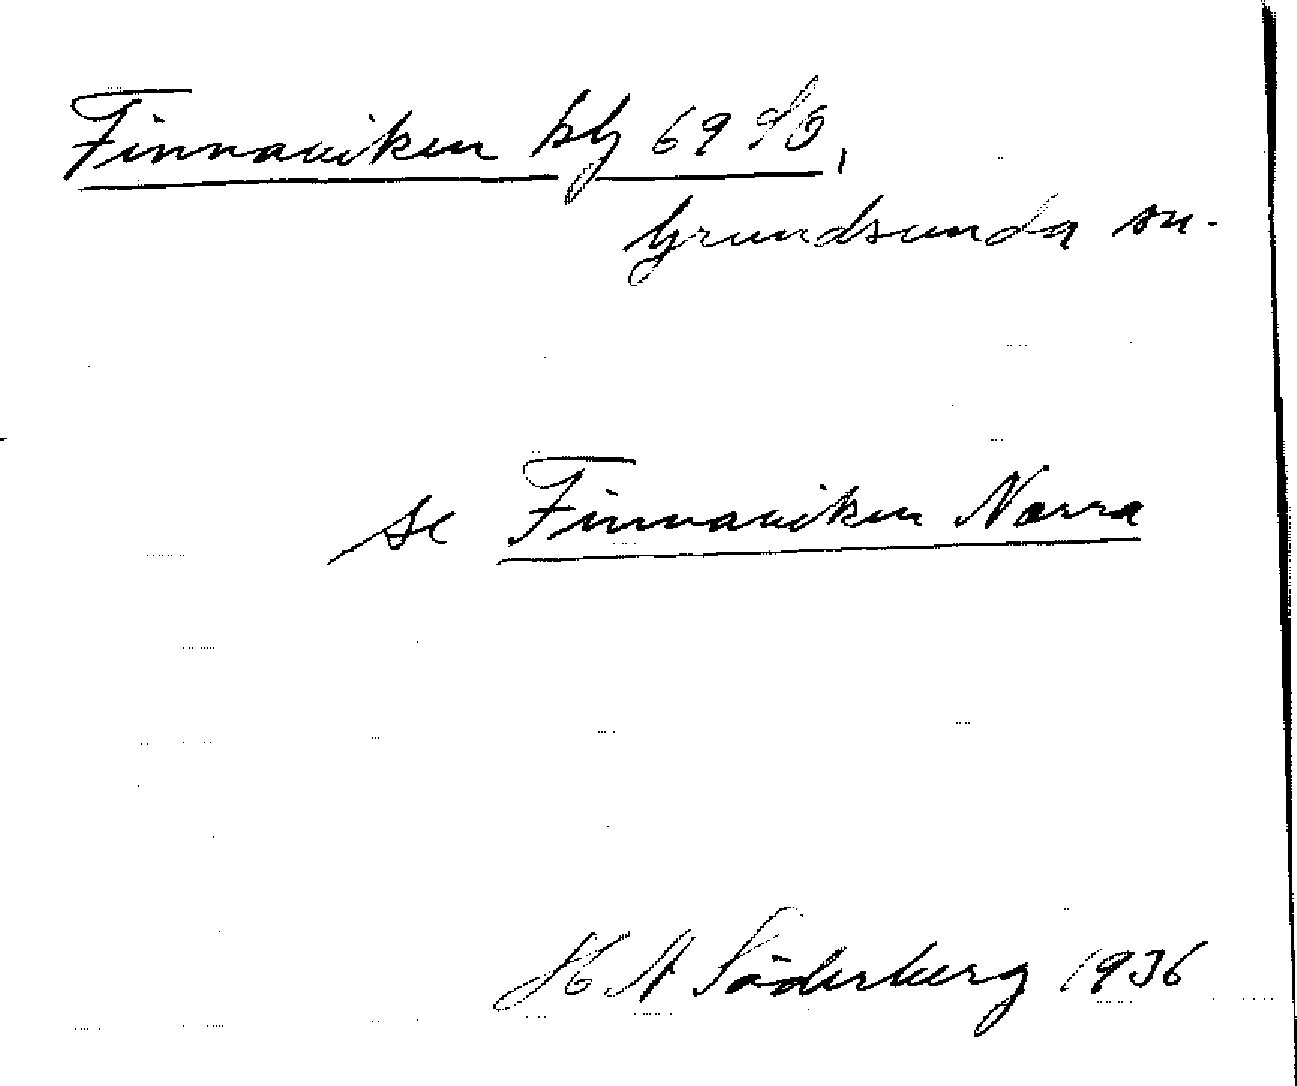 Finnaviken blg 69 SO,
Grundsunda sn.
se Finnaviken Norra
H A Söderberg 1936